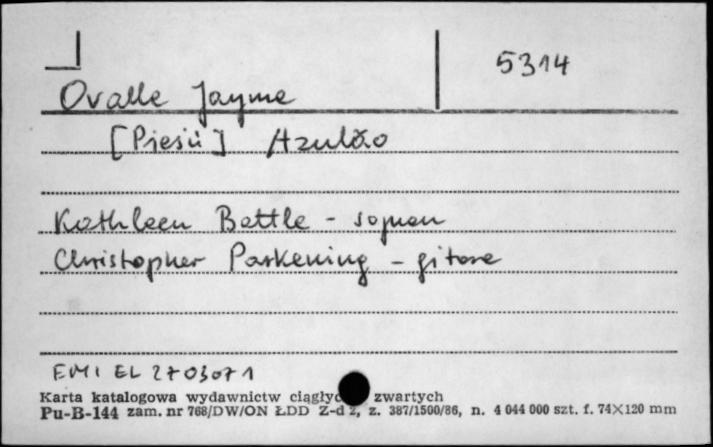 5314
Ovalle Jayme
[Pieśń] Azulão
Kathleen Battle - sopran
Christopher Parkening - gitara
EMI EL 2703071
Karta katalogowa wydawnictw ciągłyc zwartych
Pu-B-144 zam. nr 768/DW/ON ŁDD Z-d 2, z. 387/1500/86, n. 4 044 000 szt. f. 74×120 mm